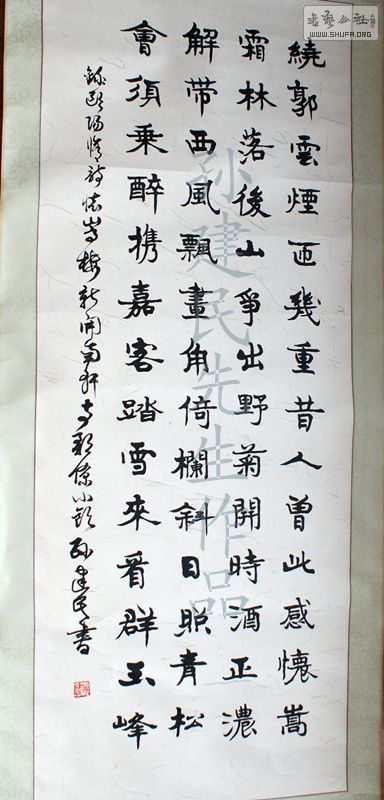 繞郭雲煙匝幾重昔人曾此感懷嵩
霜林落後山爭出野菊開時酒正濃
解带西風飄畫角倚欄斜日照青松
會須乘醉携嘉客踏雪來看群玉峰
錄歐陽脩詩懷嵩樓新開南軒與郡僚小飲 孫建民書
孙建民先生作品
書藝公社
WWW.SHUFA.ORG